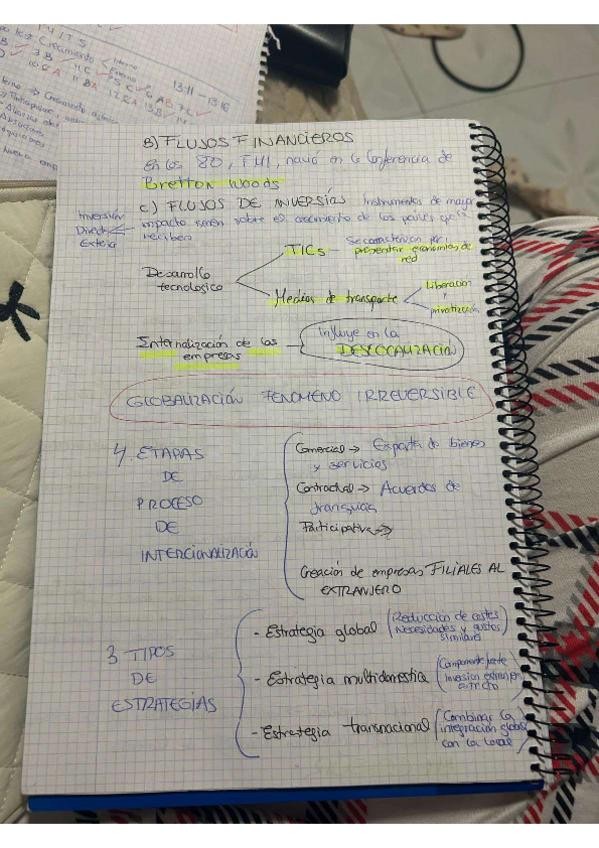 B) FLUJOS FINANCIEROS
En los 80, FMI, nació en la Conferencia de
Bretton Woods
C) FLUJOS DE INVERSÍAS Instrumentos de mayor
Inversión
Directa
Exteria
impacto sobre el crecimiento de los países que la
reciben
TICs - Se caracterizan por
presentar economías de
red
Desarrollo
tecnologico
Medios de transporte
Liberación
y
privatización
Internalización de las
empresas
Influye en la
DESLOCALIZACIÓN
GLOBALIZACIÓN FENOMENO IRREVERSIBLE
4 ETAPAS
DE
PROCESO
DE
INTERCIONALIZACIÓN
Comercial → Exporta de bienes
y servicios
Contractual → Acuerdos de
Participativa →
Creación de empresas FILIALES AL
EXTRANJERO
3 TIPOS
DE
ESTRATEGIAS
- Estrategia global (Reducción de costes
Necesidades y gustos
similares)
- Estrategia multidomestia (Componente fuerte
inversion extranjera
directo)
- Estrategia transnacional (Combinar la
integración global
con la local)
13:11 - 13:16